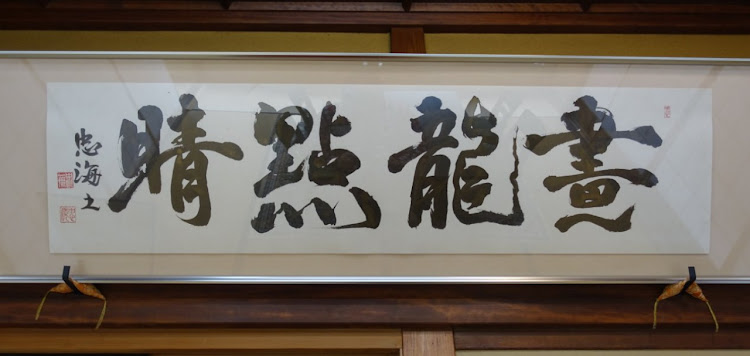 畫龍點睛
忠海